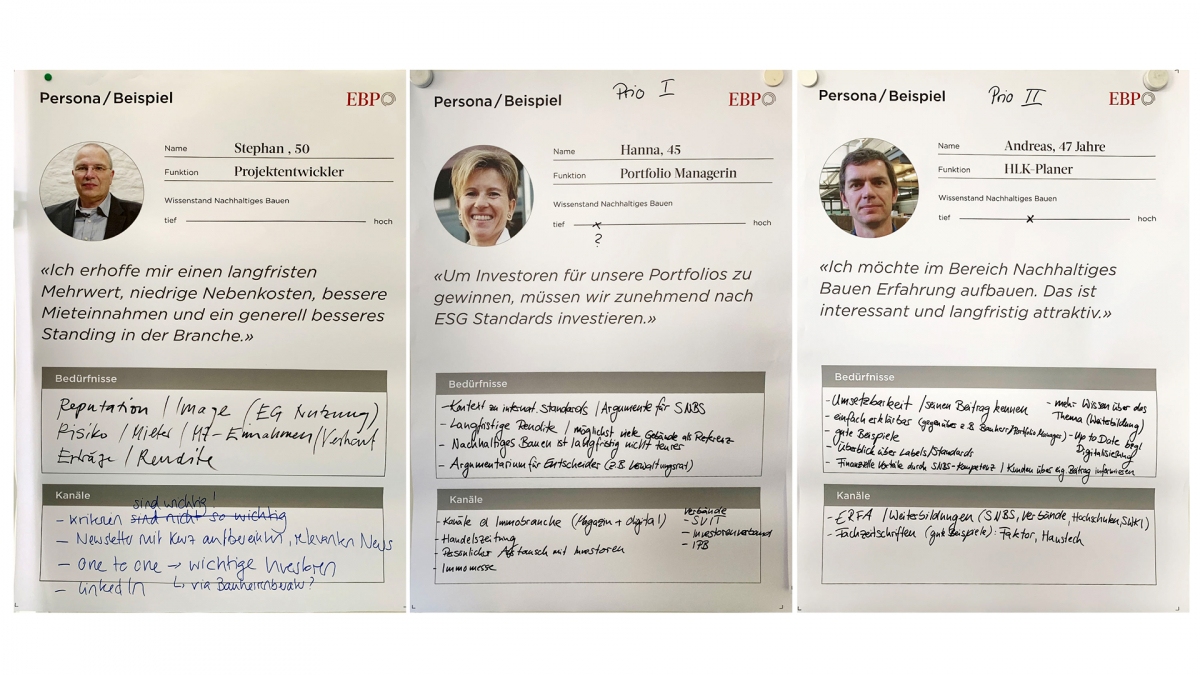 Persona / Beispiel
EBP
Name Stephan , 50
Funktion Projektentwickler
Wissenstand Nachhaltiges Bauen
tief hoch
«Ich erhoffe mir einen langfristen
Mehrwert, niedrige Nebenkosten, bessere
Mieteinnahmen und ein generell besseres
Standing in der Branche.»
Bedürfnisse
Reputation / Image (EG Nutzung)
Risiko / Mieter / M-Einnahmen / Verkauf
Erträge / Rendite
Kanäle
sind wichtig!
- Kriterien sind nicht so wichtig
- Newsletter mit kurz aufbereiteten, relevanten News
- One to one → wichtige Investoren
- LinkedIn ↳ via Bauherrenberater?
Persona / Beispiel
Prio I
EBP
Name Hanna, 45
Funktion Portfolio Managerin
Wissenstand Nachhaltiges Bauen
tief x hoch
?
«Um Investoren für unsere Portfolios zu
gewinnen, müssen wir zunehmend nach
ESG Standards investieren.»
Bedürfnisse
- Kontext zu internat. Standards / Argumente für SNBS
- Langfristige Rendite / möglichst viele Gebäude als Referenz
- Nachhaltiges Bauen ist langfristig nicht teurer
- Argumentarium für Entscheider (z.B. Verwaltungsrat)
Kanäle
- Kanäle d. Immobranche (Magazin + digital)
- Handelszeitung
- Persönlicher Austausch mit Investoren
- Immomesse
Verbände
- SVIT
- Investorenverband
- IPB
Persona / Beispiel
Prio II
EBP
Name Andreas, 47 Jahre
Funktion HLK-Planer
Wissenstand Nachhaltiges Bauen
tief x hoch
«Ich möchte im Bereich Nachhaltiges
Bauen Erfahrung aufbauen. Das ist
interessant und langfristig attraktiv.»
Bedürfnisse
- Umsetzbarkeit / seinen Beitrag kennen
- einfach erklärbar (gegenüber z.B. Bauherr/Portfolio Manager)
- gute Beispiele
- Überblick über Labels/Standards
- Finanzielle Vorteile durch SNBS-Kompetenz / Kunden über eig. Beitrag informieren
- mehr Wissen über das
Thema (Weiterbildung)
- Up to Date bzgl.
Digitalisierung
Kanäle
- ERFA / Weiterbildungen (SNBS, Verbände, Hochschulen, SWKI)
- Fachzeitschriften (gute Beispiele): Faktor, Haustech